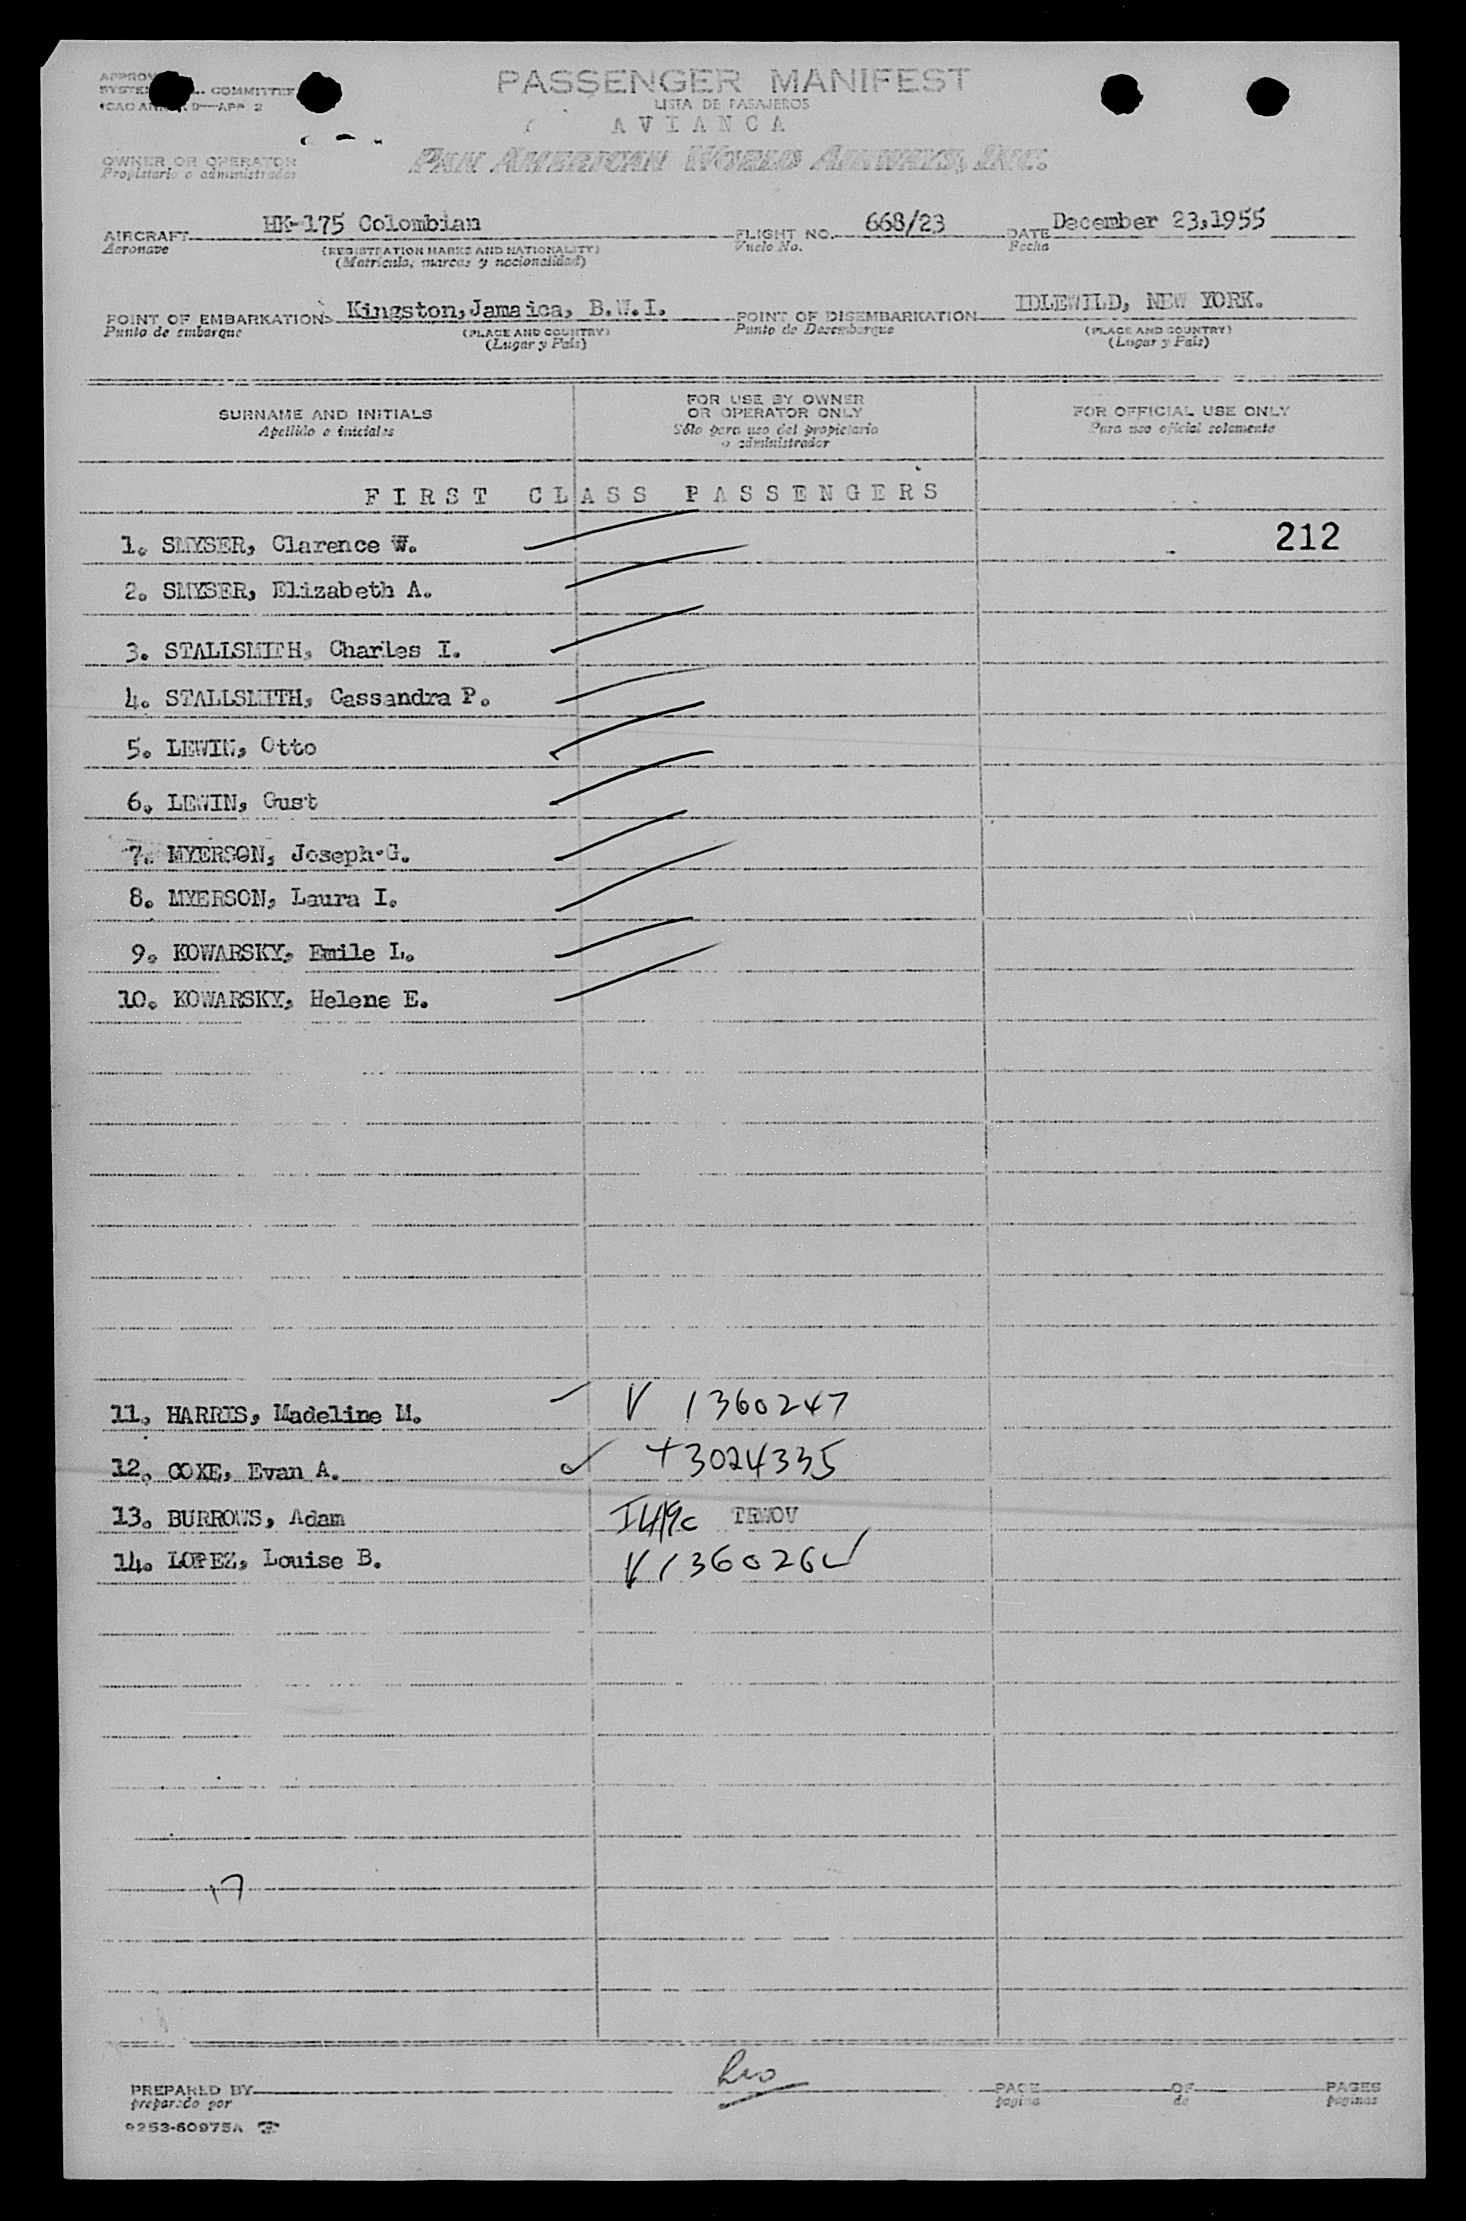 PASSENGER MANIFEST
LISTA DE PASAJEROS
AVIANCA
COMMITTEE
APP 2
OWNER OR OPERATOR
Propietario o administrador
PAN AMERICAN WORLD AIRWAYS, INC.
AIRCRAFT HK-175 Colombian FLIGHT NO. 668/23 DATE December 23,1955
Aeronave (REGISTRATION MARKS AND NATIONALITY) Vuelo No. Fecha
(Matricula, marcas y nacionalidad)
POINT OF EMBARKATION Kingston,Jamaica, B.W.I. POINT OF DISEMBARKATION IDLEWILD, NEW YORK.
Punto de embarque (PLACE AND COUNTRY) Punto de Desembarque (PLACE AND COUNTRY)
(Lugar y País) (Lugar y País)
SURNAME AND INITIALS
Apellido e iniciales
FOR USE BY OWNER
OR OPERATOR ONLY
Sólo para uso del propietario
o administrador
FOR OFFICIAL USE ONLY
Para uso oficial solamente
FIRST CLASS PASSENGERS
1. SMYSER, Clarence W. 212
2. SMYSER, Elizabeth A.
3. STALLSMITH, Charles I.
4. STALLSMITH, Cassandra P.
5. LEWIN, Otto
6. LEWIN, Gust
7. MYERSON, Joseph G.
8. MYERSON, Laura I.
9. KOWARSKY, Emile L.
10. KOWARSKY, Helene E.
11. HARRIS, Madeline M. V 1360247
12. COXE, Evan A. +3024335
13. BURROWS, Adam TRWOV
14. LOPEZ, Louise B. V 136026
17
PREPARED BY PAGE OF PAGES
preparado por pagina de paginas
9253-60975A